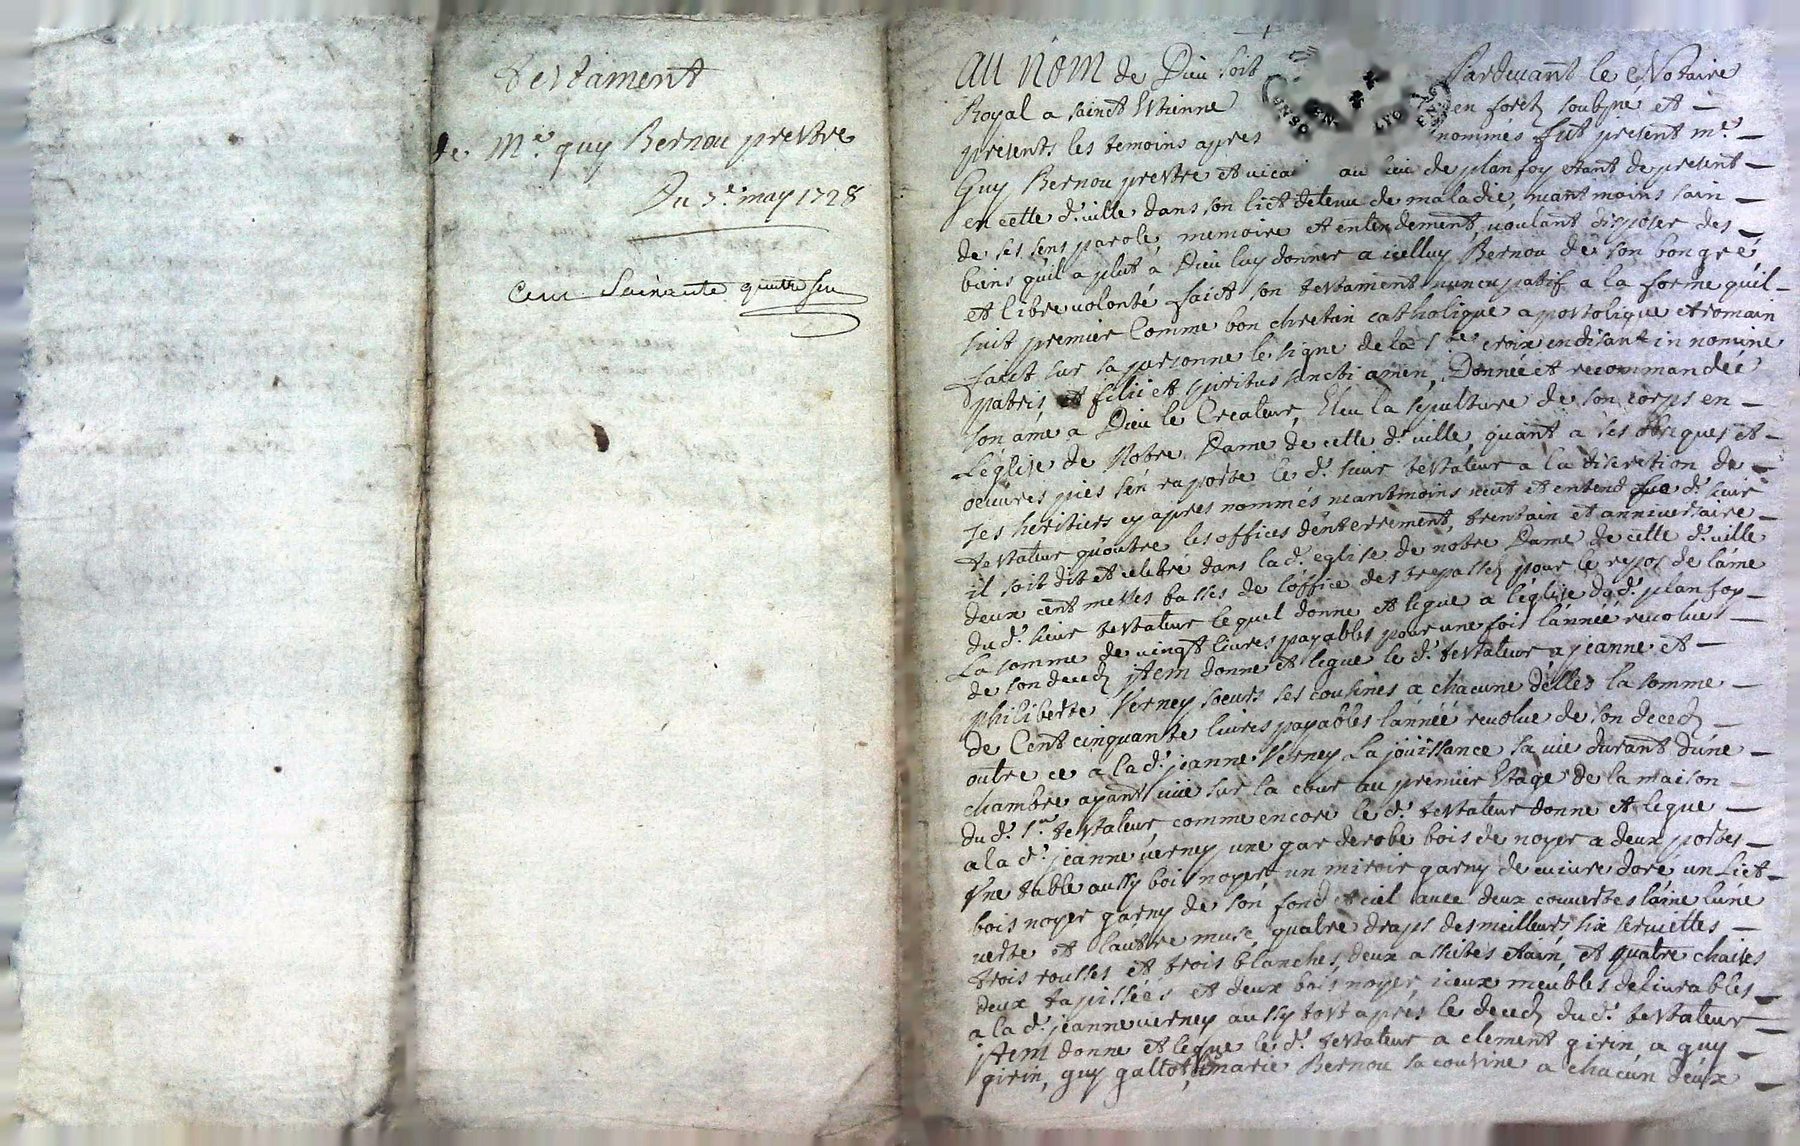 testament
de Me guy Bernou prestre
Du 7e may 1728
Cent soixante quatre
au nom de Dieu soit Pardevant le Notaire
Royal a sainct Estienne en forez soubsné et
presents les temoins apres nommés fut present me
Guy Bernou prestre et vicai au lieu de planfoy etant de present
en cette d. ville dans son lict detenu de maladie, neantmoins sain
de ses sens parole, memoire et entendement, voulant disposer des
biens qu'il a plut a Dieu luy donner a icelluy Bernou de son bon gré
et libre volonté faict son testament nuncupatif a la forme qu'il
suit premier Comme bon chretien catholique apostolique et romain
faict sur sa personne le signe de la Ste croix en disant in nomine
patris et filii et spiritus sancti amen, Donné et recommandée
son ame a Dieu le Createur, Eleu la sepulture de son corps en
L'eglise de Notre Dame de cette d. ville, quant a ses obseques et
oeuvres pies s'en raporte le d. sieur testateur a la discretion de
ses heritiers cy apres nommés neantmoins veut et entend que d. sieur
testateur qu'outre les offices d'enterrement, trentain et anniversaire
il soit dit et celebré dans la d. eglise de notre Dame de cette d. ville
deux cent messes basses de l'office des trepassez pour le repos de l'ame
du d. sieur testateur lequel donne et legue a l'eglise dud. planfoy
La somme de vingt livres payables pour une fois l'année revolue
de son decedz jtem donne et legue le d. testateur a jeanne et
philiberte Verney soeurs ses cousines a chacune d'elles la somme
de Cent cinquante livres payables l'année revolue de son decedz
outre ce a la d. jeanne Verney La jouissance sa vie durant d'une
chambre ayant vüe sur la cour au premier Etage de la maison
du d. sr testateur, comme encore le d. testateur donne et legue
a la d. jeanne verney une garderobe bois de noyer a deux portes
Vne table aussy bois noyer un miroir garny de cuivre doré un Lict
bois noyer garny de son fond et ciel avec deux couvertes laine l'une
verte et l'autre musc, quatre draps des meilleurs six serviettes
trois rousses et trois blanches, deux assietes etain, et quatre chaises
deux tapissées et deux bois noyer, iceux meubles delivrables
a la d. jeanne verney aussy tost après le decedz du d. testateur
jtem donne et legue le d. testateur a clement girin a guy
girin, guy gallot, marie Bernou sa cousine a chacun deux